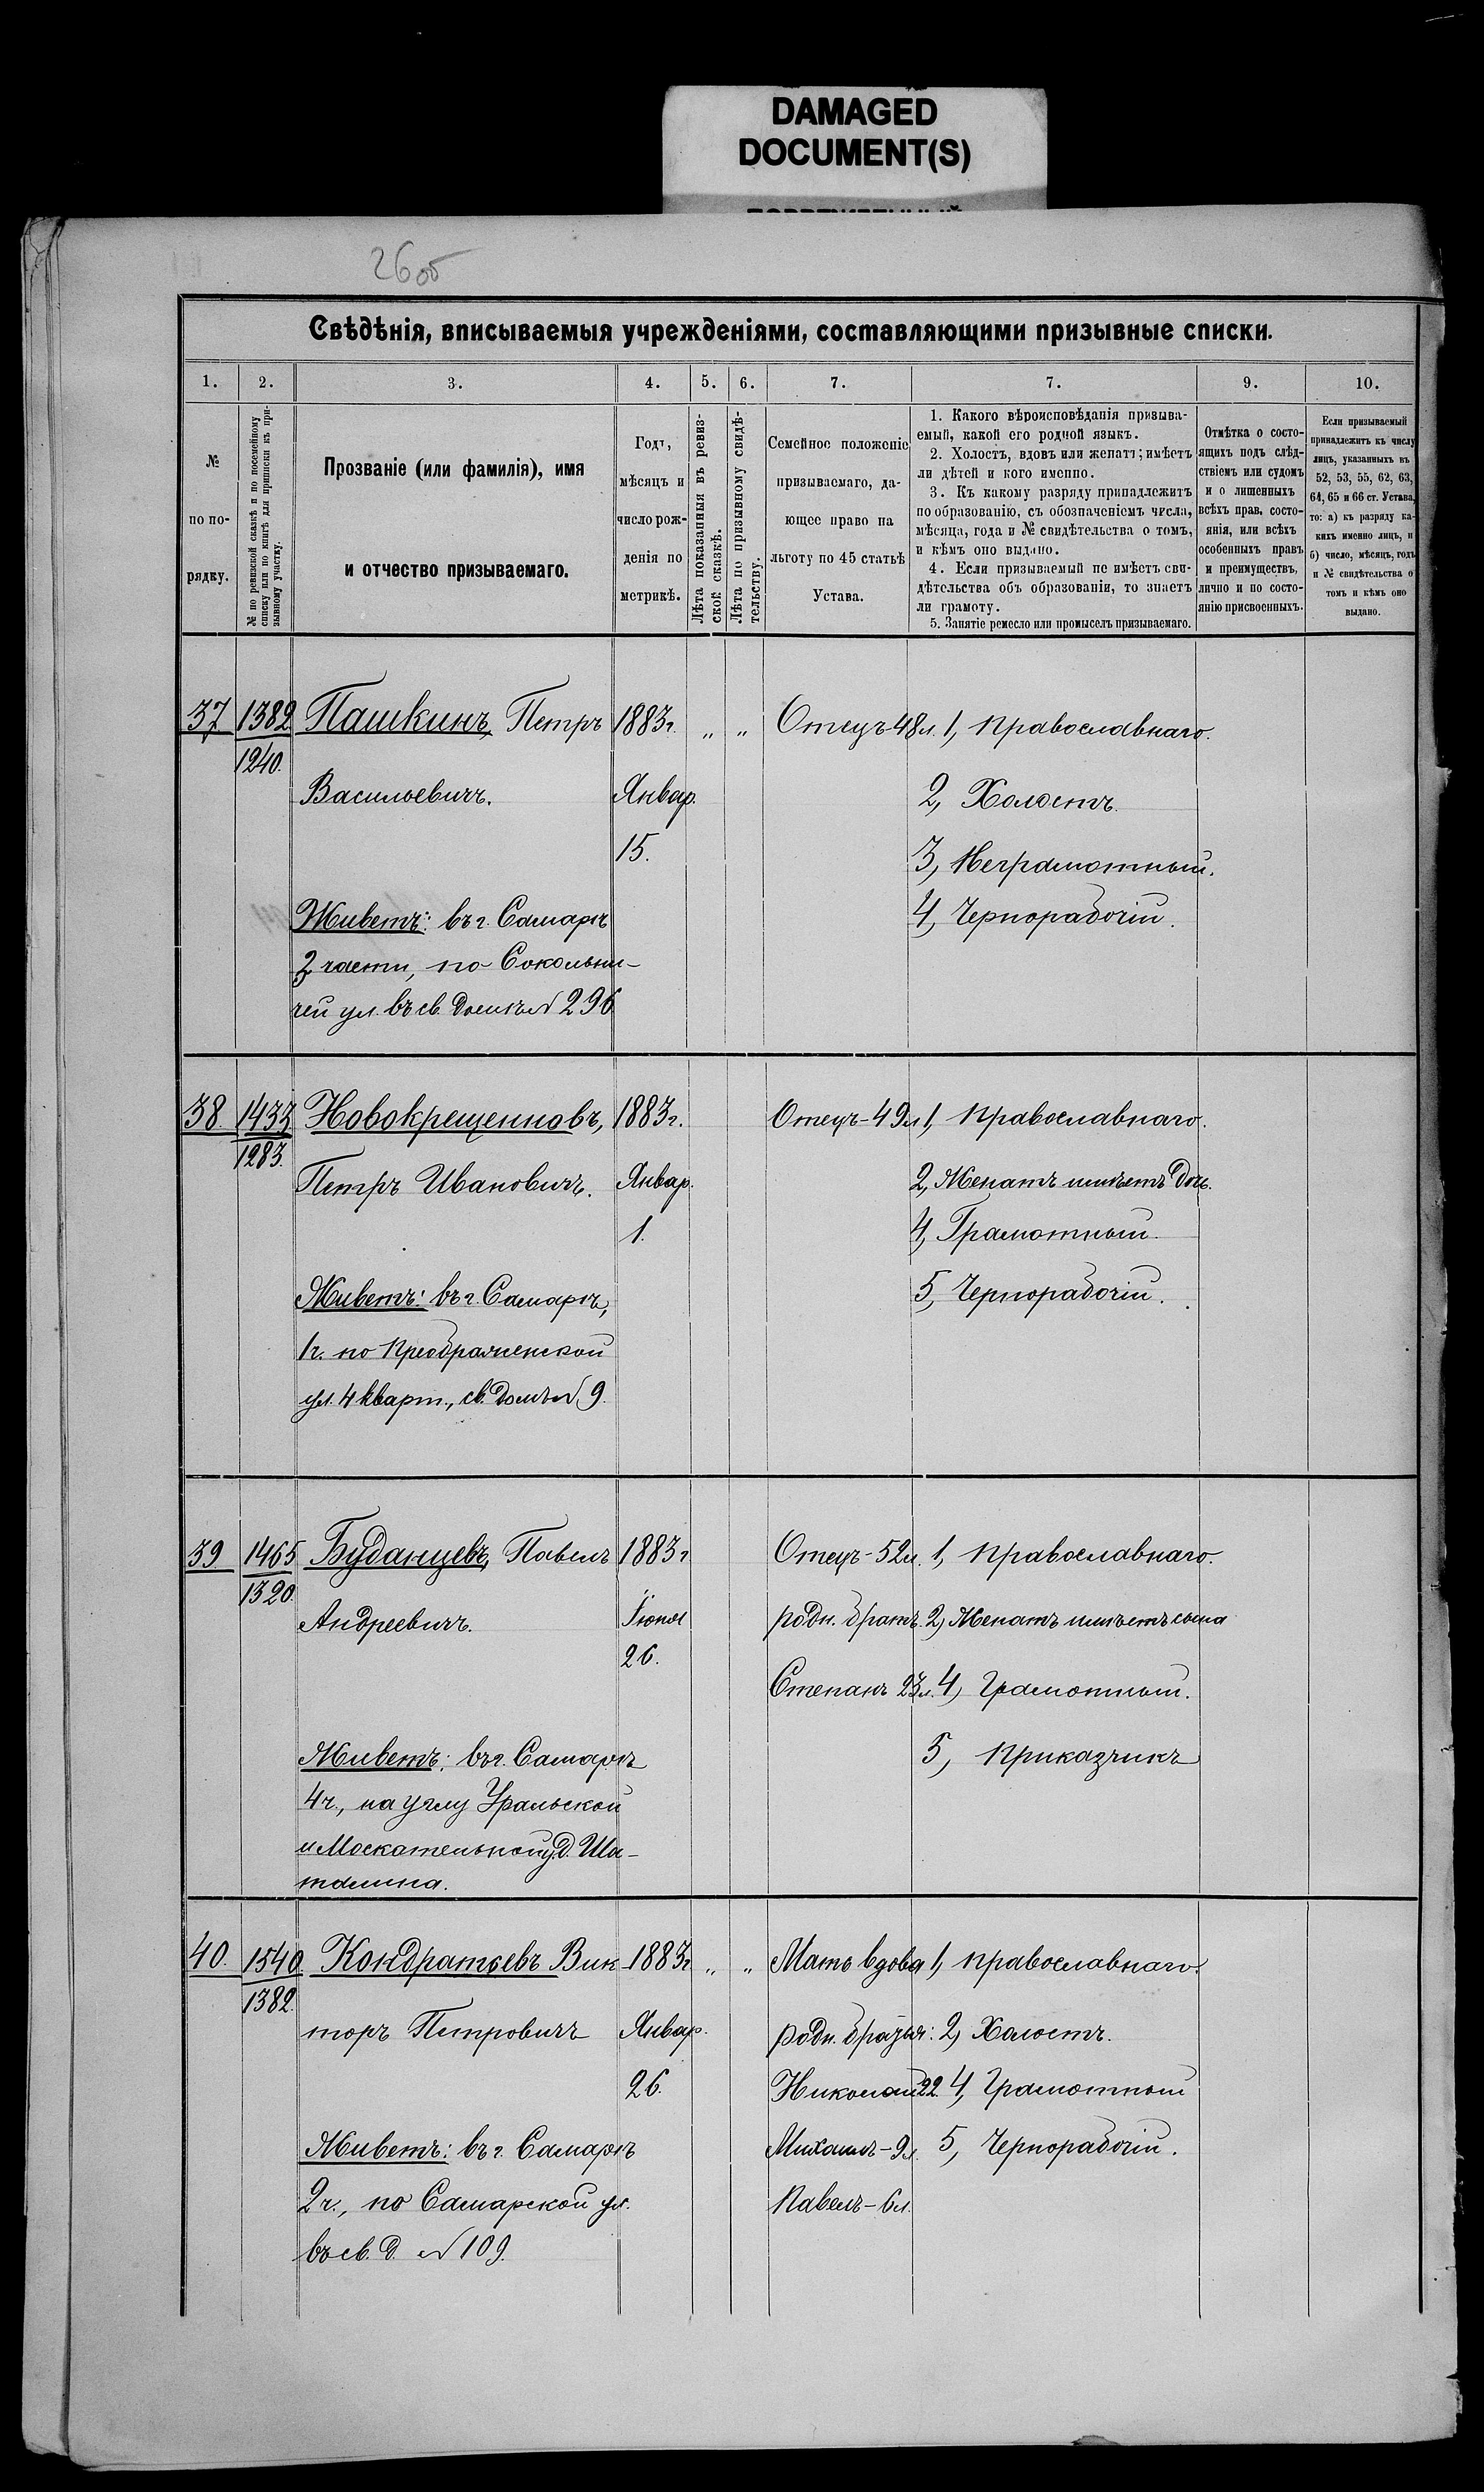 DAMAGED
DOCUMENT(S)
26 об
Свѣдѣнія, вписываемыя учрежденіями, составляющими призывные списки.
1. 2. 3. 4. 5. 6. 7. 7. 9. 10.
№
по по-
рядку.
№ по ревизской сказкѣ и по посемейному
списку или по книгѣ для приписки къ при-
зывному участку.
Прозваніе (или фамилія), имя
и отчество призываемаго.
Годъ,
мѣсяцъ и
число рож-
денія по
метрикѣ.
Лѣта показанныя въ ревиз-
ской сказкѣ.
Лѣта по призывному свидѣ-
тельству.
Семейное положеніе
призываемаго, да-
ющее право на
льготу по 45 статьѣ
Устава.
1. Какого вѣроисповѣданія призыва-
емый, какой его родной языкъ.
2. Холостъ, вдовъ или женатъ; имѣетъ
ли дѣтей и кого именно.
3. Къ какому разряду принадлежитъ
по образованію, съ обозначеніемъ числа,
мѣсяца, года и № свидѣтельства о томъ,
и кѣмъ оно выдано.
4. Если призываемый не имѣетъ сви-
дѣтельства объ образованіи, то знаетъ
ли грамоту.
5. Занятіе ремесло или промыселъ призываемаго.
Отмѣтка о состо-
ящихъ подъ слѣд-
ствіемъ или судомъ
и о лишенныхъ
всѣхъ прав, состо-
янія, или всѣхъ
особенныхъ правъ
и преимуществъ,
лично и по состо-
янію присвоенныхъ.
Если призываемый
принадлежитъ къ числу
лицъ, указанныхъ въ
52, 53, 55, 62, 63,
64, 65 и 66 ст. Устава,
то: а) къ разряду ка-
кихъ именно лицъ, и
б) число, мѣсяцъ, годъ
и № свидѣтельства о
томъ и кѣмъ оно
выдано.
37 1382 Пашкинъ, Петръ 1883г. „ „ Отецъ-48л. 1, Православнаго.
1240.
Васильевичъ. Январ. 2, Холостъ.
15. 3, Неграмотный.
Живетъ: въ г. Самарѣ 4, Чернорабочій.
3 части, по Сокольни-
чей ул. въ св. домѣ № 296
38. 1433 Новокрещенновъ, 1883г. Отецъ-49л 1, Православнаго.
1283.
Петръ Ивановичъ. Январ. 2, Женатъ имѣетъ дочь.
1. 4, Грамотный.
Живетъ: въ г. Самарѣ, 5, Чернорабочій.
1ч. по Преображенской
ул. 4 кварт., св. домъ № 9.
39 1465 Буданцевъ, Павелъ 1883г Отецъ-52л. 1, Православнаго.
1320.
Андреевичъ. Іюня родн. братъ. 2) Женатъ имѣетъ сына
26. Степанъ 23л. 4) Грамотный.
Живетъ: въ г. Самарѣ 5, Приказчикъ
4ч., на углу Уральской
и Москательной у. д. Ша-
талина.
40. 1540. Кондратьевъ Вик- 1883г „ „ Мать вдова 1, Православнаго.
1382.
торъ Петровичъ Январ. родн. братья: 2) Холостъ.
26. Николай 22. 4, Грамотный
Живетъ: въ г. Самарѣ Михаилъ-9л. 5, Чернорабочій.
2ч., по Самарской ул. Павелъ-6л.
въ св. д. № 109.